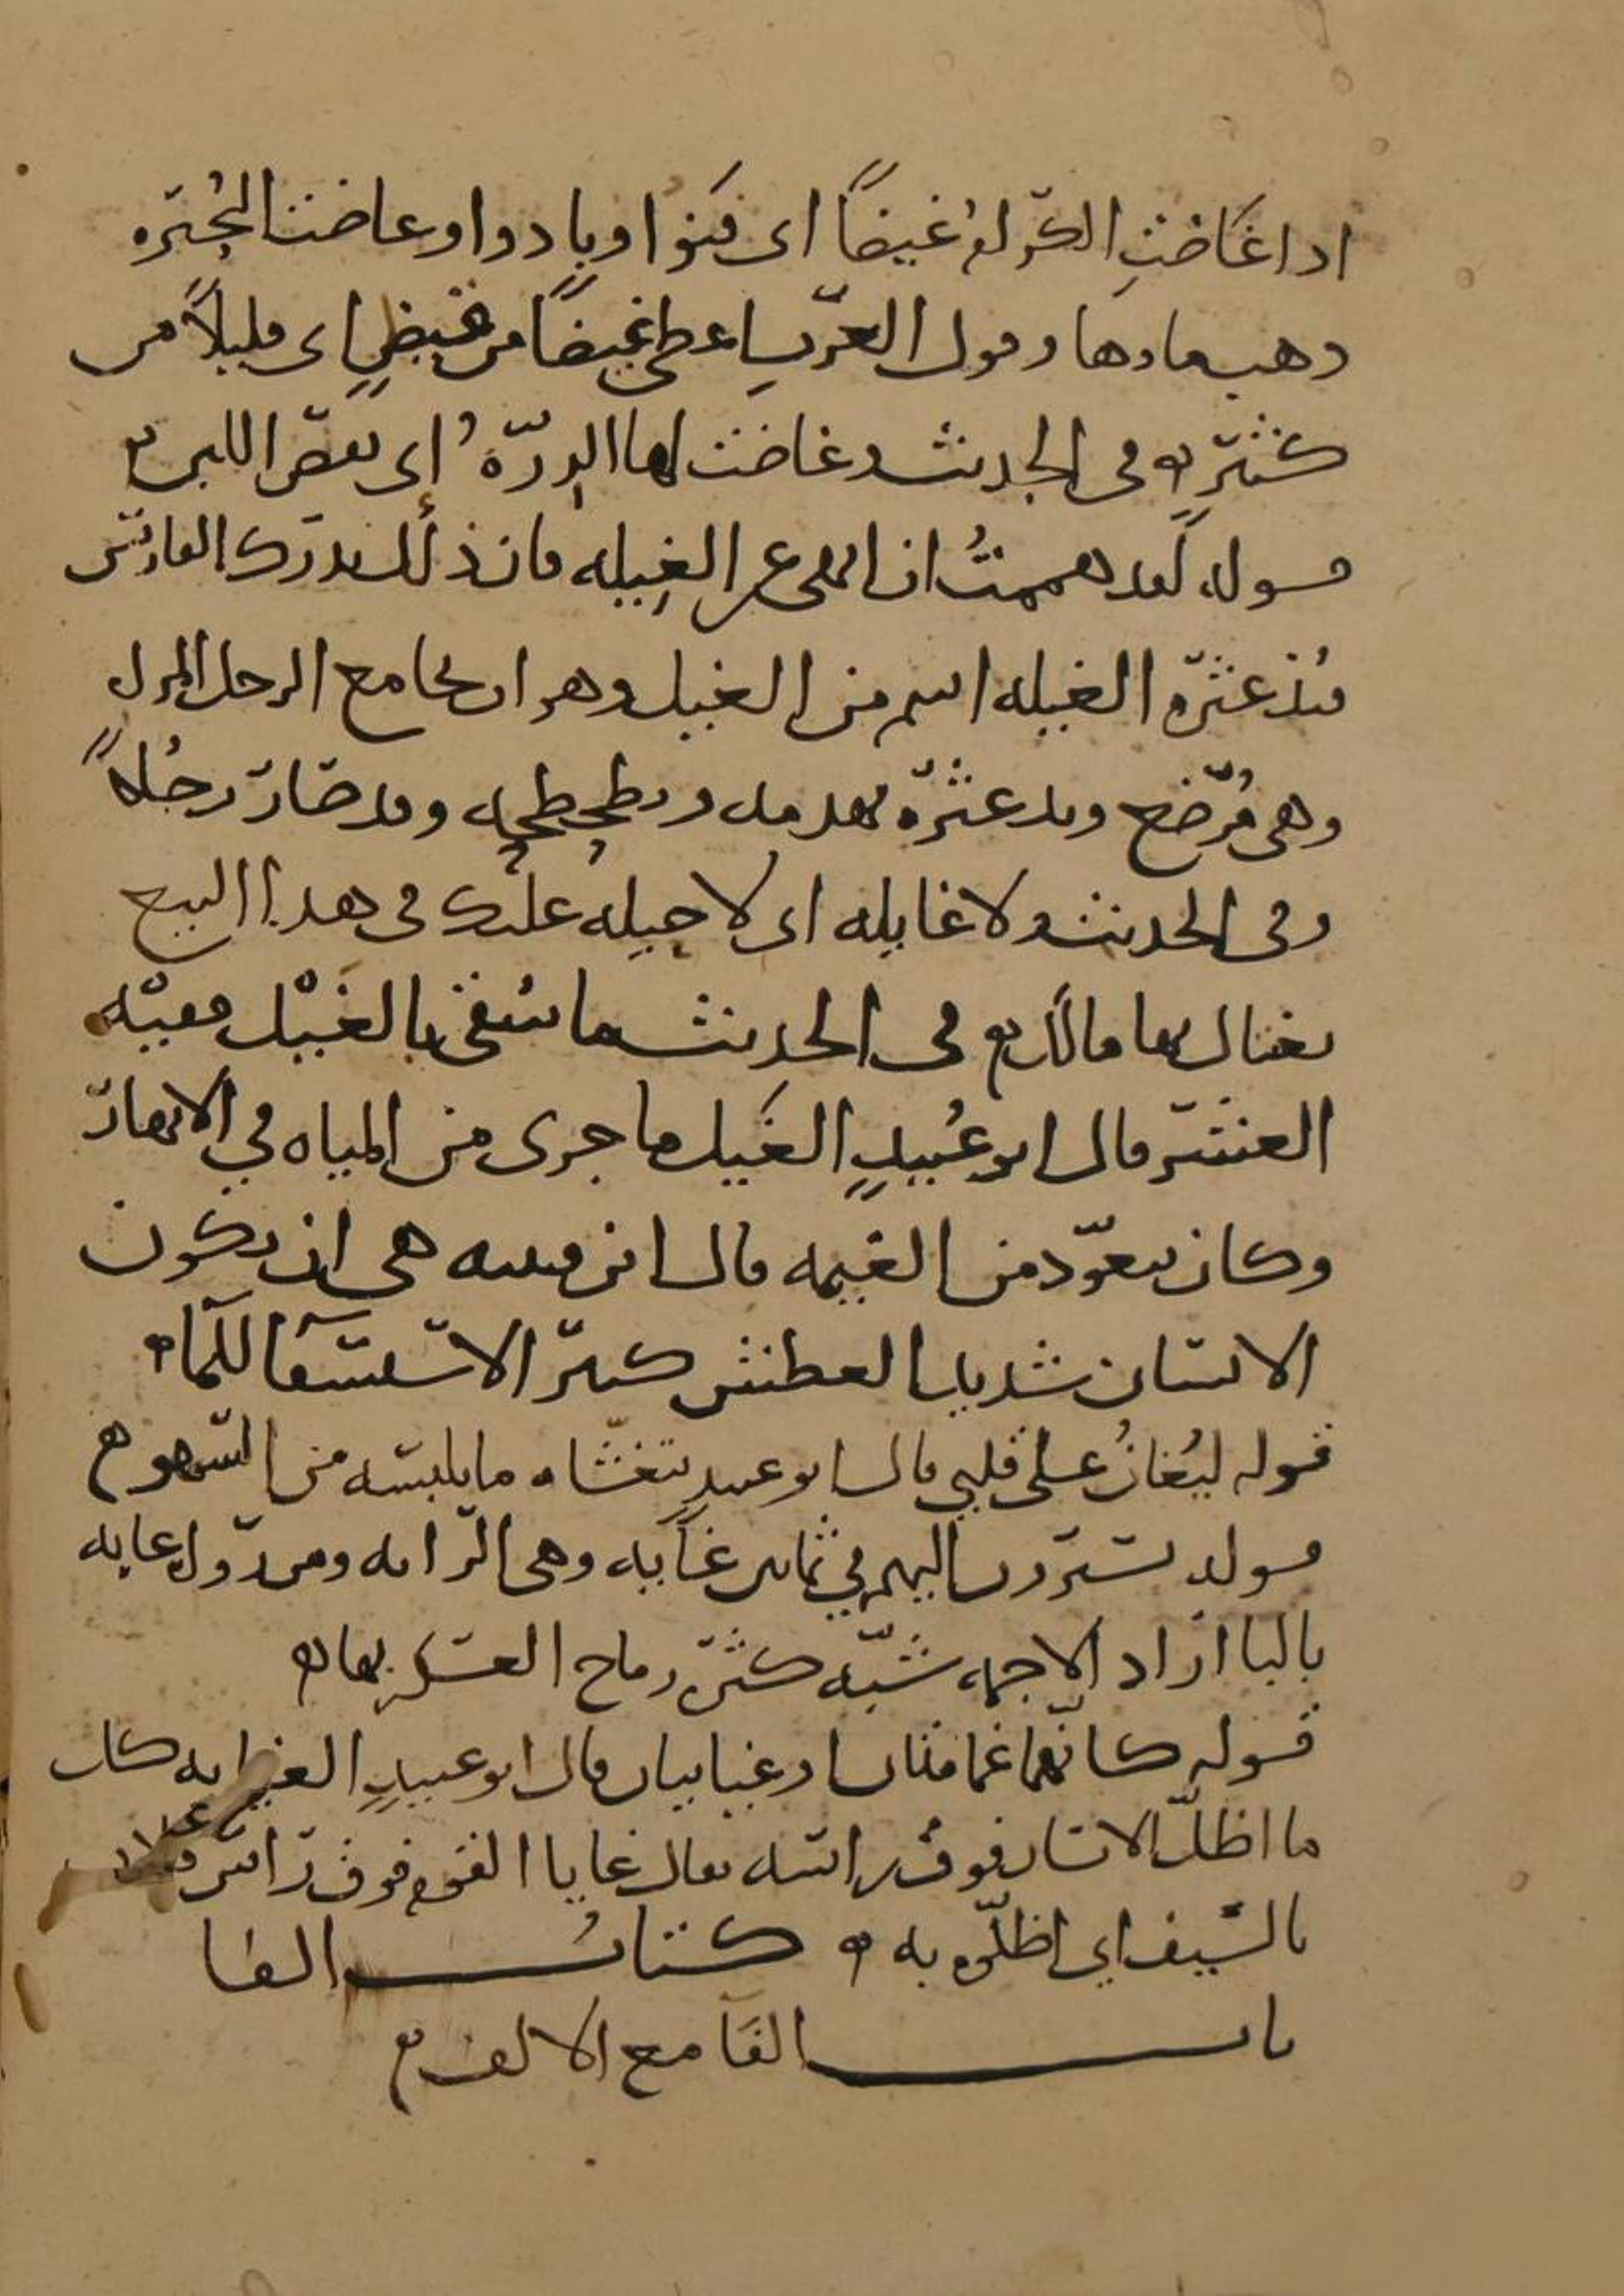 اذا غَاضَتِ الكرام غيضًا اى فنوا وبادوا وغاضت البُحَيره
ذهب ماوها وقول العرب اعطى غيضًا من فيضٍ اى قليلاً من
كثيرٍ وفى الحديث وغاضت لها الدِرّةُ اى نقص اللبن
قوله لقد هممتُ ان انهى عن الغِيله فان ذلك يدرك الفارس
فيدعثره الغيله اسم من الغيل وهو ان يجامع الرجل المراه
وهى مُرضع ويدعثره يهدمه ويطحطحه وقد صار رجُلاً
وفى الحديث ولا غايله اى لا حيله عليك فى هذا البيع
يغتال بها مالك فى الحديث ما سُقى بالغَيْل ففيه
العشر قال ابو عُبيدٍ الغَيل ما جرى من المياه في الانهار
وكان يتعوّذ من الغيمه قال ابن قتيبه هى ان يكون
الانسان شديد العطش كثير الاستسقآ للمآ
قوله ليُغانُ على قلبي قال ابو عبيدٍ يتغشّاه ما يلبسه من السهو
قوله يسيرون اليهم في ثمانين غَايه وهى الرايه ومن روا غابه
بالبا اراد الاجمه شبّه كثرة رماح العسكر بها
قوله كانّهما غمامتان او غيايتان قال ابو عبيدٍ الغيايه كل
ما اظلّ الانسان فوق راسه يقال غايا القوم فوق راس فلان
بالسّيف اي اظلّوه به كتابُ الفا
باب الفَآ مع الالف